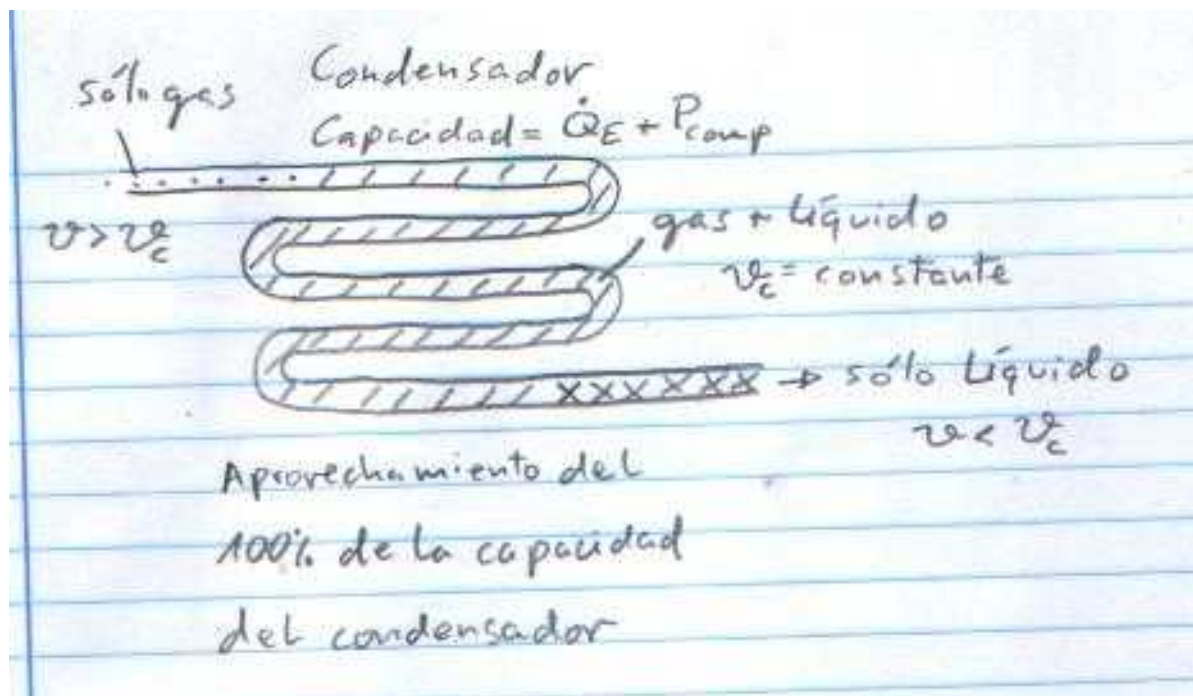 sólo gas
Condensador
Capacidad = Q̇E + Pcomp
v > vc
gas + Líquido
vc = constante
xxxxxxx → sólo Líquido
v < vc
Aprovechamiento del
100% de la capacidad
del condensador